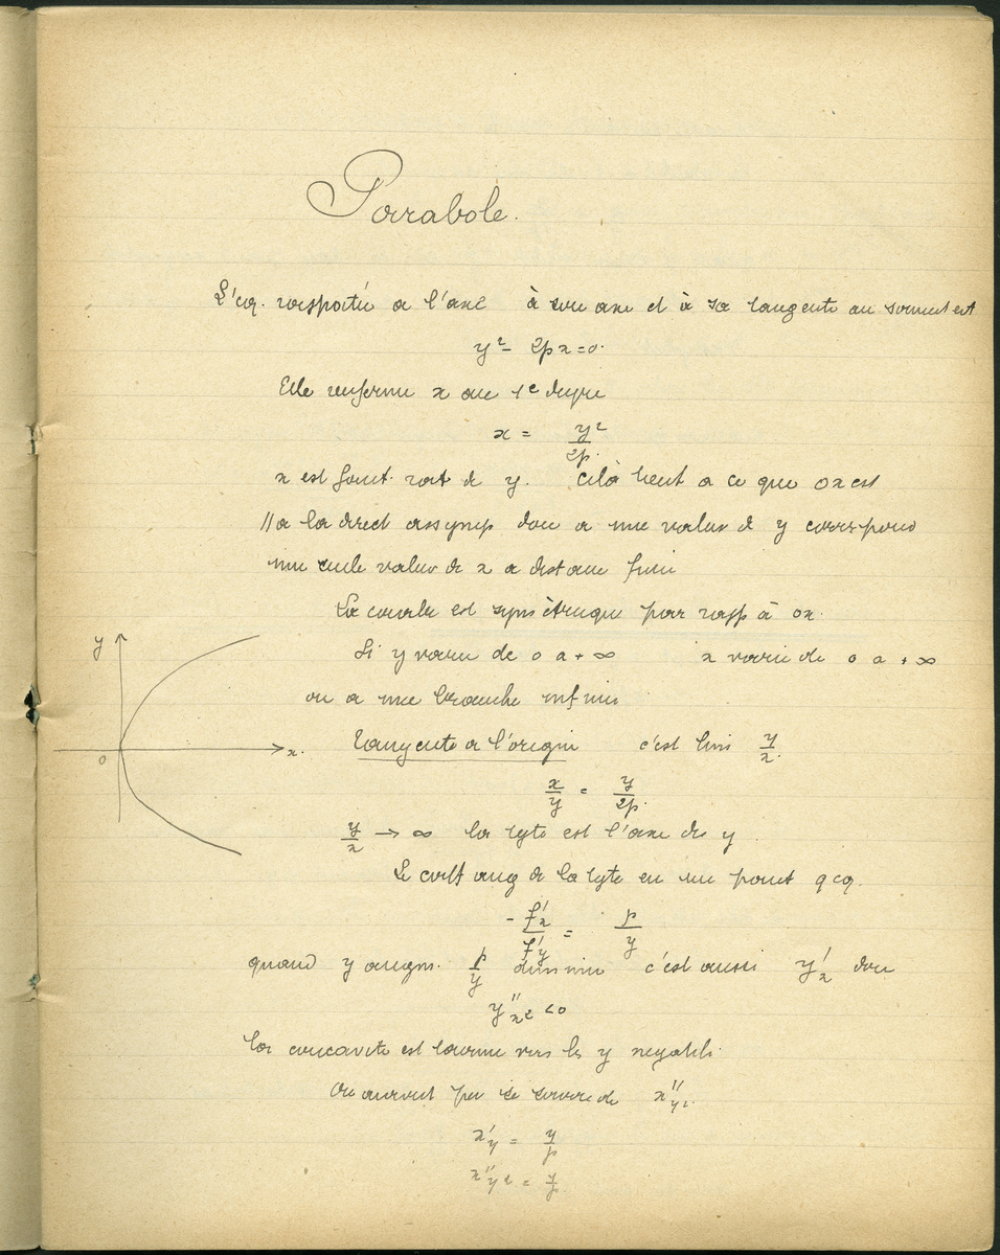 Parabole.
L'eq. rapportée a l'axe à son axe et à sa tangente au sommet est
y² - 2px = 0.
Elle renferme x au 1e degre
x = y²/2p
x est fonct. rat de y. Celà tient a ce que ox est
// a la direct asymp donc a une valeur de y correspond
une seule valeur de x a distance finie
La courbe est symètrique par rapp à ox.
Si y varie de 0 a + ∞ x varie de 0 a + ∞
on a une branche infinie
y
o
x.
Tangente a l'origine c'est lim y/x.
x/y = y/2p.
y/x → ∞ la tgte est l'axe des y
Le coeff ang de la tgte en un point qcq.
- f'x/f'y = p/y
quand y augm. p/y diminue c'est aussi y'x donc
y''x² <0
la concavite est tournee vers les y negatifs.
On aurait pu se servir de x''y².
x'y = y/p
x''y² =